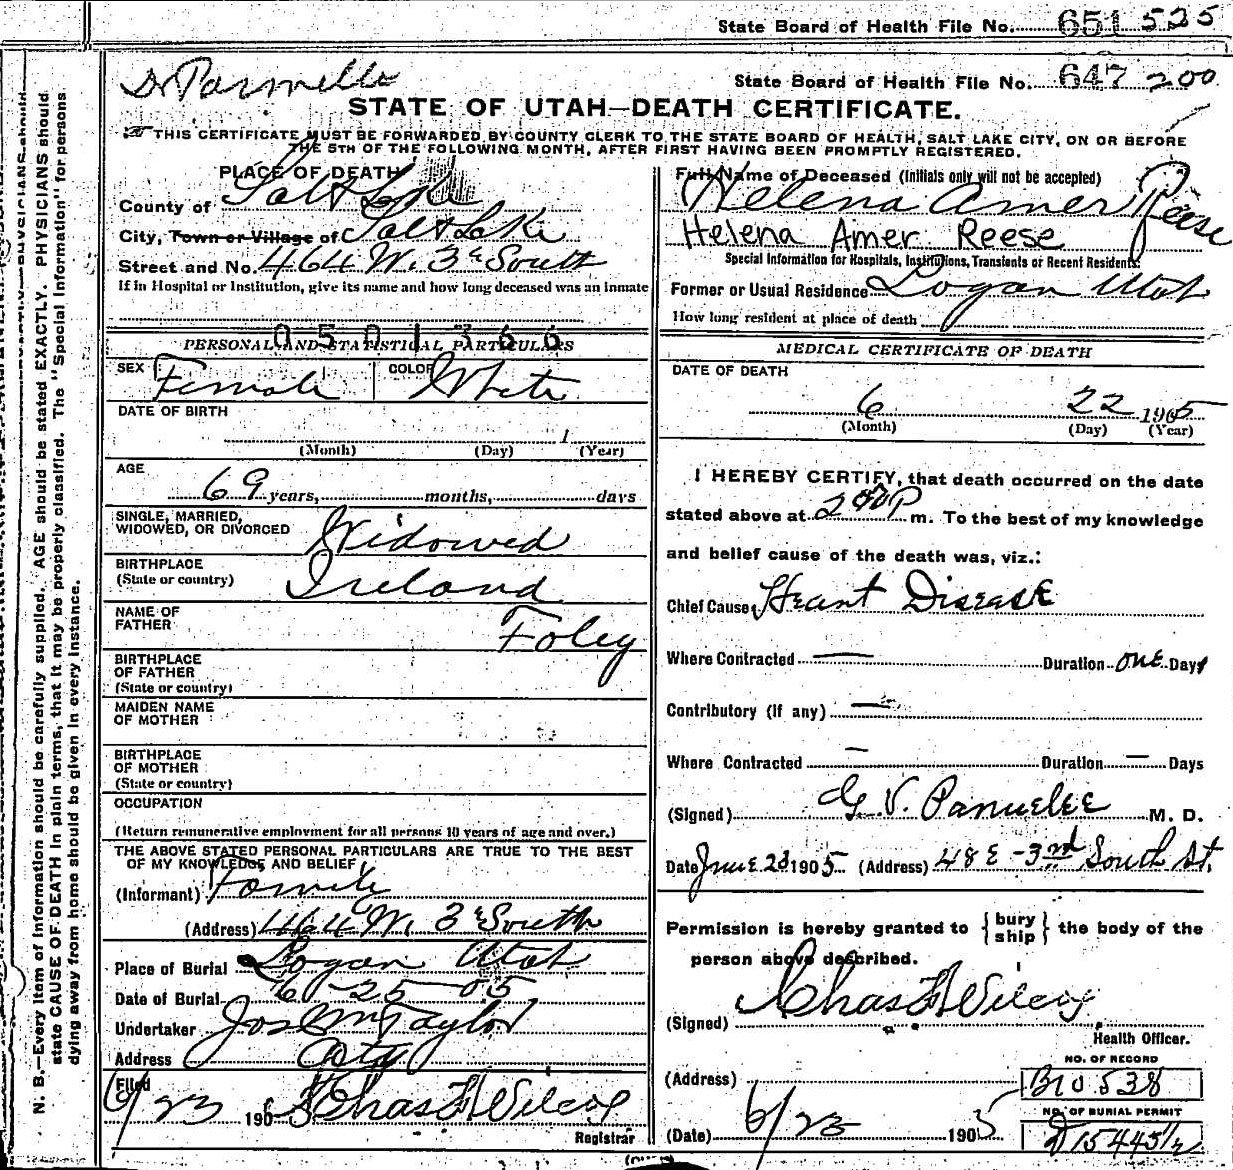 State Board of Health File No. 651 525
Dr Parmelle
State Board of Health File No. 647 200
STATE OF UTAH—DEATH CERTIFICATE.
THIS CERTIFICATE MUST BE FORWARDED BY COUNTY CLERK TO THE STATE BOARD OF HEALTH, SALT LAKE CITY, ON OR BEFORE
THE 5TH OF THE FOLLOWING MONTH, AFTER FIRST HAVING BEEN PROMPTLY REGISTERED.
PLACE OF DEATH
County of Salt Lake
City, Town or Village of Salt Lake
Street and No. 464 W. 3d South
If in Hospital or Institution, give its name and how long deceased was an inmate
0501366
PERSONAL AND STATISTICAL PARTICULARS
SEX Female COLOR White
DATE OF BIRTH
1
(Month) (Day) (Year)
AGE
69 years, months, days
SINGLE, MARRIED,
WIDOWED, OR DIVORCED Widowed
BIRTHPLACE
(State or country) Ireland
NAME OF
FATHER Foley
BIRTHPLACE
OF FATHER
(State or country)
MAIDEN NAME
OF MOTHER
BIRTHPLACE
OF MOTHER
(State or country)
OCCUPATION
(Return remunerative employment for all persons 10 years of age and over.)
THE ABOVE STATED PERSONAL PARTICULARS ARE TRUE TO THE BEST
OF MY KNOWLEDGE AND BELIEF
(Informant) Family
(Address) 464 W. 3d South
Place of Burial Logan Utah
Date of Burial 6-25-05
Undertaker Jos Wm Taylor
Address City
Filed
6/23 1905 Chas F Wilcox
Registrar
Full Name of Deceased (Initials only will not be accepted)
Helena Amer Reese
Helena Amer Reese
Special Information for Hospitals, Institutions, Transients or Recent Residents:
Former or Usual Residence Logan Utah
How long resident at place of death
MEDICAL CERTIFICATE OF DEATH
DATE OF DEATH
6 22 1905
(Month) (Day) (Year)
I HEREBY CERTIFY, that death occurred on the date
stated above at 2 P m. To the best of my knowledge
and belief cause of the death was, viz.:
Chief Cause, Heart Disease
Where Contracted — Duration one Days
Contributory (if any) —
Where Contracted — Duration — Days
(Signed) G. V. M. D.
Date June 23 1905 (Address) 48 E - 3rd South St.
Permission is hereby granted to { bury ship } the body of the
person above described.
(Signed) Chas F Wilcox
Health Officer.
(Address)
NO. OF RECORD
B10538
NO. OF BURIAL PERMIT
D15445 1/2
(Date) 6/23 1905
N. B.—Every item of information should be carefully supplied. AGE should be stated EXACTLY. PHYSICIANS should
state CAUSE OF DEATH in plain terms, that it may be properly classified. The "Special Information" for persons
dying away from home should be given in every instance.